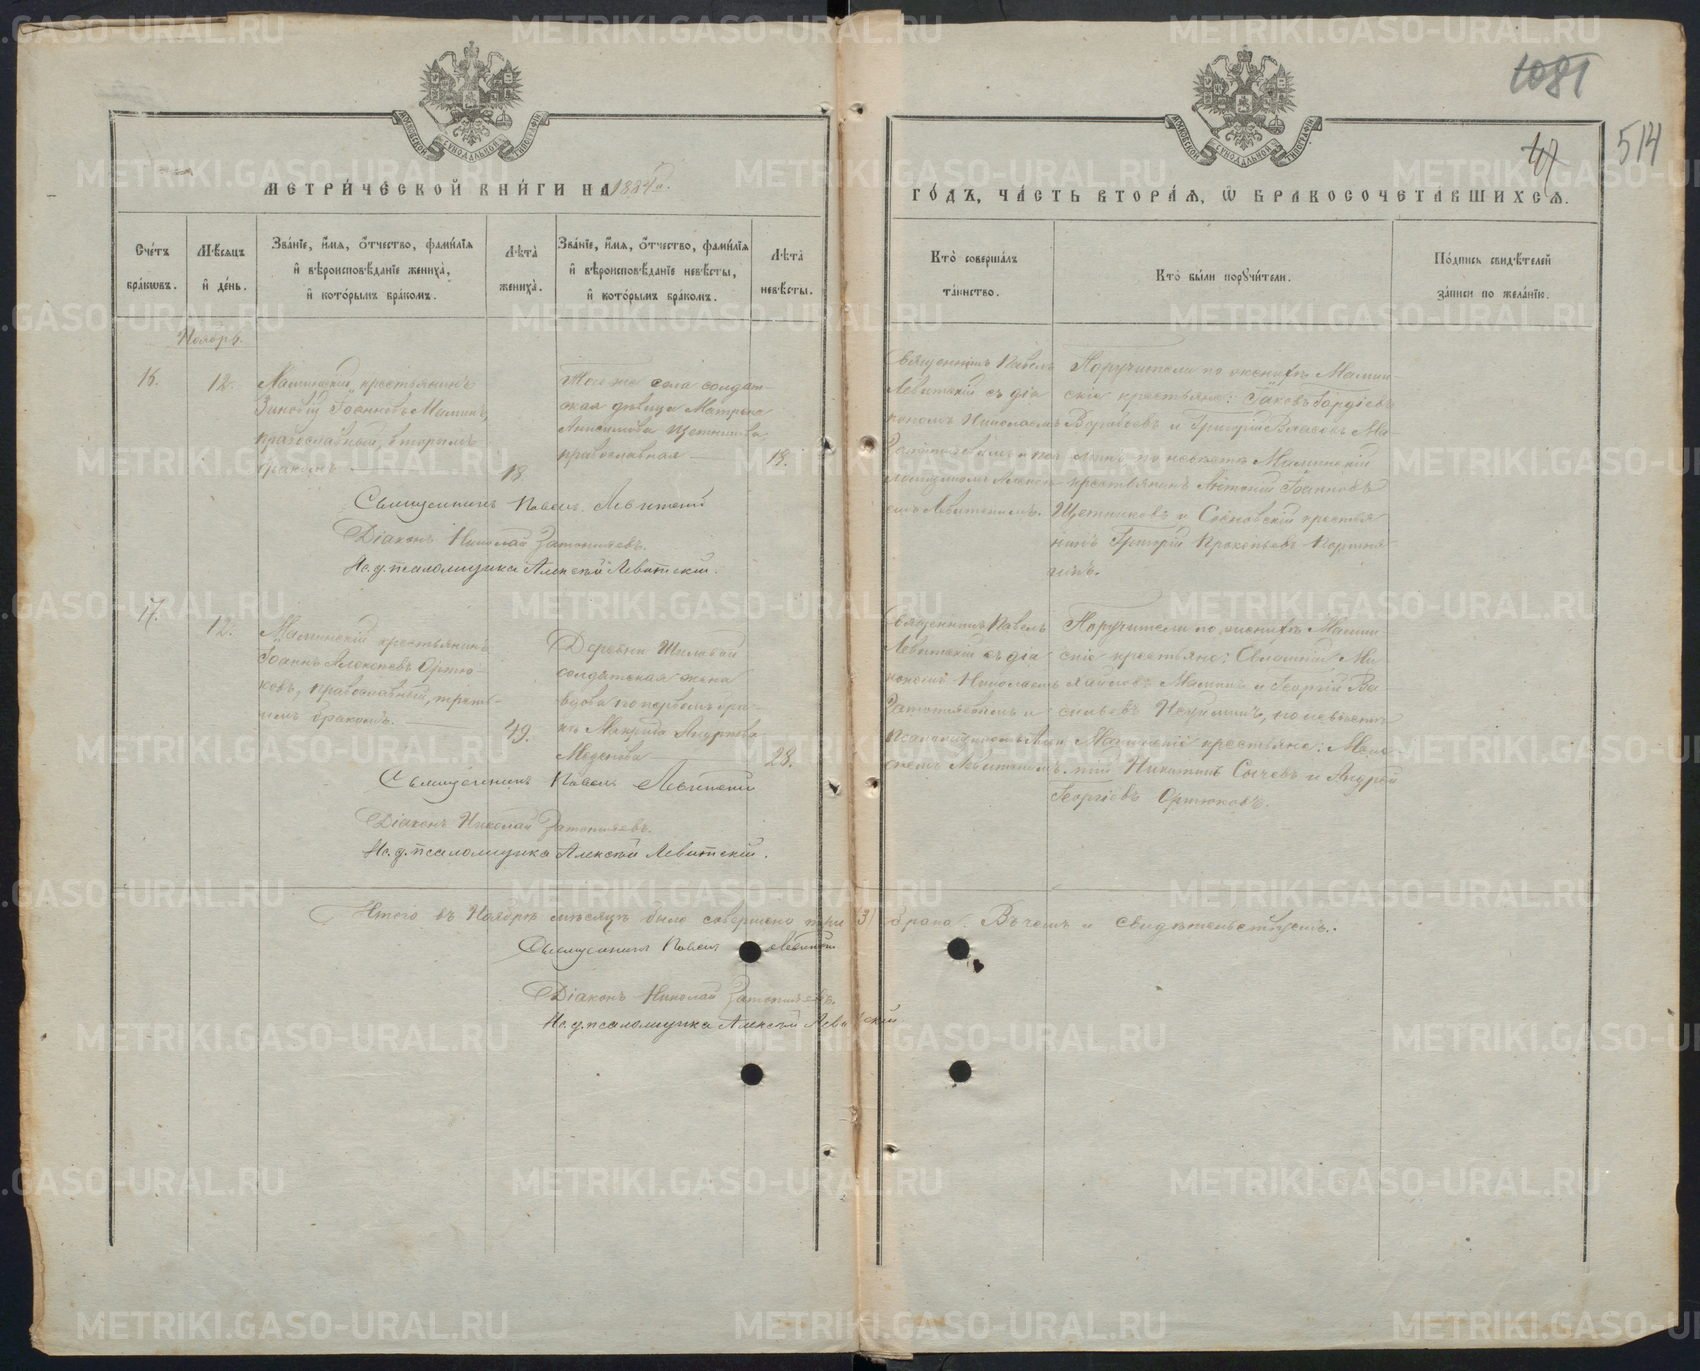 1081
514
47
МЕТРИ́ЧЕСКОЙ КНИ́ГИ НА 1884 г.
ГО́ДЪ, ЧА́СТЬ ВТОРА́Ѧ, Ѿ БРАКОСОЧЕТА́ВШИХСѦ.
МОСКОВСКОЙ СѴНОДАЛЬНОЙ ТИПОГРАФІИ
МОСКОВСКОЙ СѴНОДАЛЬНОЙ ТИПОГРАФІИ
Сче́тъ бра́кѡвъ.
Мѣ́сяцъ и де́нь.
Зва́нїе, и́мя, о́тчество, фами́лїя
и вѣроисповѣ́данїе жениха̀,
и кото́рымъ бра́комъ.
Лѣта̀ жениха̀.
Зва́нїе, и́мя, о́тчество, фами́лїя
и вѣроисповѣ́данїе невѣ́сты,
и кото́рымъ бра́комъ.
Лѣта̀ невѣ́сты.
Кто̀ соверша́лъ
та́инство.
Кто̀ бы́ли пору́чи́тели.
По́дпись свидѣ́телей
за́писи по жела́нїю.
Ноябрь.
16.
12.
Маминскій крестьянинъ
Зиновій Іоанновъ Маминъ,
православный, вторымъ
бракомъ
18.
Того же села солдат-
ская дѣвица Матрона
Анисимова Щетникова
православная
18.
Священникъ Павелъ
Левитскій съ діа
кономъ Николаемъ
Затопляевымъ и
псаломщикомъ Алексѣ
емъ Левитскимъ.
Поручители по женихѣ Мамин
скіе крестьяне: Іаковъ Гордіевъ
Воробьевъ и Григорій Власовъ Ма-
минъ по невѣстѣ Маминскій
крестьянинъ Іоанновъ
Щетниковъ и Сосновскій крестья
нинъ Григорій Прокопьевъ
Священникъ Павелъ Левитскій
Діаконъ Николай Затопляевъ.
Ис. д. псаломщика Алексѣй Левитскій.
17.
12.
Маминскій крестьянинъ
Іоаннъ Алексѣевъ Ортю-
ковъ, православный, треть-
имъ бракомъ.
49.
Деревни Шиловой
солдатская жена
вдова по первомъ бра-
кѣ Андреева
28.
Священникъ Павелъ
Левитскій съ діа
кономъ Николаемъ
Затопляевымъ и
псаломщикомъ Алек
сѣемъ Левитскимъ.
Поручители по женихѣ Мамин
скіе крестьяне: Ми-
хайловъ Маминъ и Георгій Ва
сильевъ по невѣстѣ
Маминскіе крестьяне:
Никитинъ Сычевъ и Андрей
Георгіевъ Ортюковъ.
Священникъ Павелъ Левитскій
Діаконъ Николай Затопляевъ.
Ис. д. псаломщика Алексѣй Левитскій.
Итого въ Ноябрѣ мѣсяцѣ было совершено три (3) брака. Въ чемъ и свидѣтельствуемъ.
Священникъ Павелъ Левитскій
Діаконъ Николай Затопляевъ.
Ис. д. псаломщика Алексѣй Левитскій
METRIKI.GASO-URAL.RU